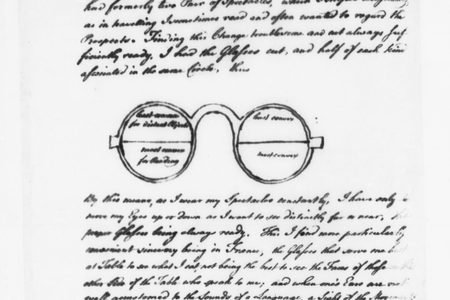 had formerly two Pair of Spectacles, which I
as in travelling I sometimes read and often wanted to regard the
Prospects. Finding this Change troublesome and not always suf
ficiently ready, I had the Glasses cut, and half of each kind
associated in the same Circle, thus
least convex
for distant Objects
least convex
most convex
for Reading
most convex
By this means, as I wear my Spectacles constantly, I have only
move my Eyes up or down as I want to see distinctly far or near,
proper Glasses being always ready. This I find more particularly
convenient since my being in France, the Glasses that serve me
at Table to see what I eat, not being the best to see the Faces of those
other Side of the Table who speak to me; and when ones Ears are not
well accustomed to the Sounds of a Language, a Sight of the